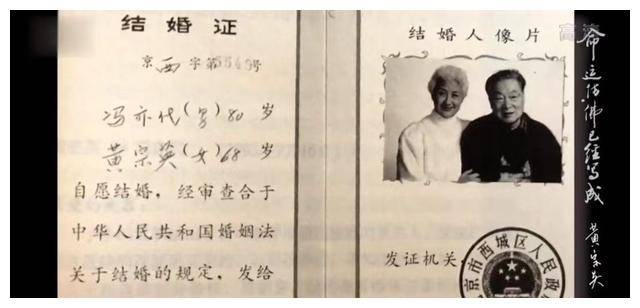 结婚证
京西字第5549号
冯亦代(男)80岁
黄宗英(女)68岁
自愿结婚，经审查合于
中华人民共和国婚姻法
关于结婚的规定，发给
结婚人像片
发证机关
京市西城区人民政
命运仿佛已经写成
黄宗英
高清